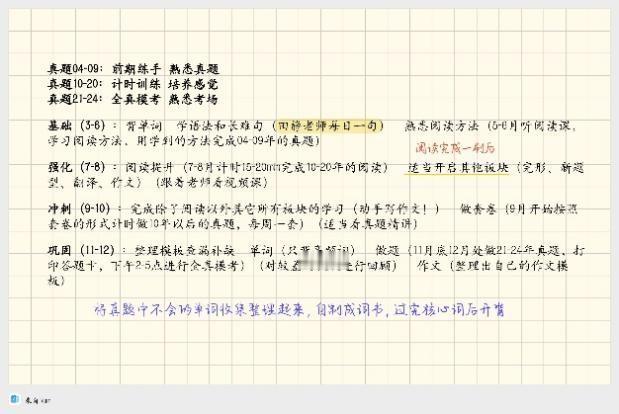 真题04-09：前期练手 熟悉真题
真题10-20：计时训练 培养感觉
真题21-24：全真模考 熟悉考场
基础（3-6）：背单词 学语法和长难句（田静老师每日一句） 熟悉阅读方法（5-6月听阅读课，
学习阅读方法，用学到的方法完成04-09年的真题）
阅读完成一刷后
强化（7-8）：阅读提升（7-8月计时15-20min完成10-20年的阅读） 适当开启其他板块（完形、新题
型、翻译、作文）（跟着老师看视频课）
冲刺（9-10）：完成除了阅读以外其它所有板块的学习（动手写作文！） 做套卷（9月开始按照
套卷的形式计时做10年以后的真题，每周一套）（适当看真题精讲）
巩固（11-12）：整理模板查漏补缺 单词（只看高频词） 做题（11月底12月处做21-24年真题、打
印答题卡，下午2-5点进行全真模考）（对较 进行回顾） 作文（整理出自己的作文模
板）
将真题中不会的单词收集整理起来，自制成词书，过完核心词后开背